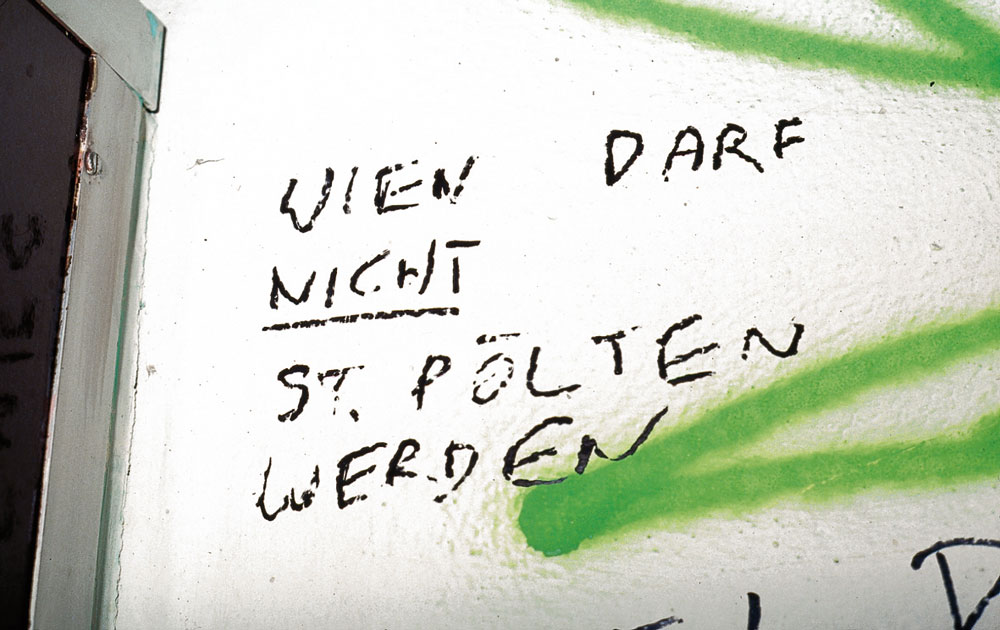 WIEN DARF
NICHT
ST. PÖLTEN
WERDEN